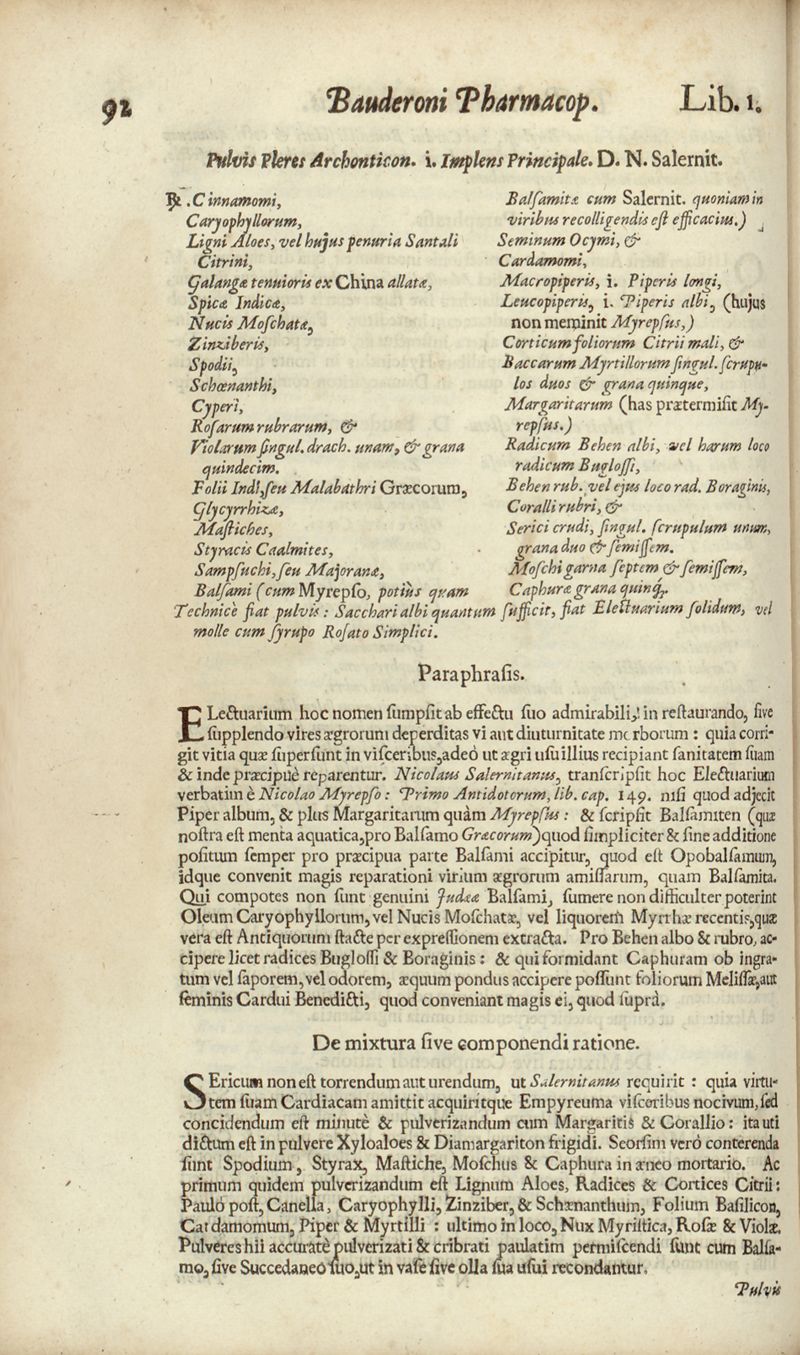 92 Bauderoni Pharmacop. Lib. 1.
Pulvis Pleres Archonticon. i. Implens Principale. D. N. Salernit.
℞. Cinnamomi,
Caryophyllorum,
Ligni Aloes, vel hujus penuria Santali
Citrini,
Galangæ tenuioris ex China allatæ,
Spicæ Indicæ,
Nucis Moſchatæ,
Zinziberis,
Spodii,
Schœnanthi,
Cyperi,
Roſarum rubrarum, &
Violarum ſingul. drach. unam, & grana
quindecim.
Folii Indi, ſeu Malabathri Græcorum,
Glycyrrhizæ,
Maſtiches,
Styracis Caalmites,
Sampſuchi, ſeu Majoranæ,
Balſami (cum Myrepſo, potiùs quam
Balſamitæ cum Salernit. quoniam in
viribus recolligendis eſt efficacius.)
Seminum Ocymi, &
Cardamomi,
Macropiperis, i. Piperis longi,
Leucopiperis, i. Piperis albi, (hujus
non meminit Myrepſus,)
Corticum foliorum Citrii mali, &
Baccarum Myrtillorum ſingul. ſcrupu-
los duos & grana quinque,
Margaritarum (has prætermiſit My-
repſus.)
Radicum Behen albi, vel harum loco
radicum Bugloſſi,
Behen rub. vel ejus loco rad. Boraginis,
Coralli rubri, &
Serici crudi, ſingul. ſcrupulum unum,
grana duo & ſemiſſem.
Moſchi garna ſeptem & ſemiſſem,
Caphuræ grana quinq;.
Technicè fiat pulvis: Sacchari albi quantum ſufficit, fiat Electuarium ſolidum, vel
molle cum ſyrupo Roſato Simplici.
Paraphraſis.
ELectuarium hoc nomen ſumpſit ab effectu ſuo admirabili, in reſtaurando, ſive
ſupplendo vires ægrorum deperditas vi aut diuturnitate morborum: quia corri-
git vitia quæ ſuperſunt in viſceribus, adeò ut ægri uſu illius recipiant ſanitatem ſuam
& inde præcipuè reparentur. Nicolaus Salernitanus, tranſcripſit hoc Electuarium
verbatim è Nicolao Myrepſo: Primo Antidotorum, lib. cap. 149. niſi quod adjecit
Piper album, & plus Margaritarum quàm Myrepſus: & ſcripſit Balſamiten (quæ
noſtra eſt menta aquatica, pro Balſamo Græcorum) quod ſimpliciter & ſine additione
poſitum ſemper pro præcipua parte Balſami accipitur, quod eſt Opobalſamum,
idque convenit magis reparationi virium ægrorum amiſſarum, quam Balſamita.
Qui compotes non ſunt genuini Judææ Balſami, ſumere non difficulter poterint
Oleum Caryophyllorum, vel Nucis Moſchatæ, vel liquorem Myrrhæ recentis, quæ
vera eſt Antiquorum ſtacte per expreſſionem extracta. Pro Behen albo & rubro, ac-
cipere licet radices Bugloſſi & Boraginis: & qui formidant Caphuram ob ingra-
tum vel ſaporem, vel odorem, æquum pondus accipere poſſunt foliorum Meliſſæ, aut
ſeminis Cardui Benedicti, quod conveniant magis ei, quod ſuprà.
De mixtura ſive componendi ratione.
SEricum non eſt torrendum aut urendum, ut Salernitanus requirit: quia virtu-
tem ſuam Cardiacam amittit acquiritque Empyreuma viſceribus nocivum, ſed
concidendum eſt minutè & pulverizandum cum Margaritis & Corallio: ita uti
dictum eſt in pulvere Xyloaloes & Diamargariton frigidi. Seorſim verò conterenda
ſunt Spodium, Styrax, Maſtiche, Moſchus & Caphura in æneo mortario. Ac
primum quidem pulverizandum eſt Lignum Aloes, Radices & Cortices Citrii:
Paulò poſt, Canella, Caryophylli, Zinziber, & Schænanthum, Folium Baſilicon,
Cardamomum, Piper & Myrtilli: ultimo in loco, Nux Myriſtica, Roſæ & Violæ.
Pulveres hii accuratè pulverizati & cribrati paulatim permiſcendi ſunt cum Balſa-
mo, ſive Succedaneo ſuo, ut in vaſe ſive olla ſua uſui recondantur.
Pulvis